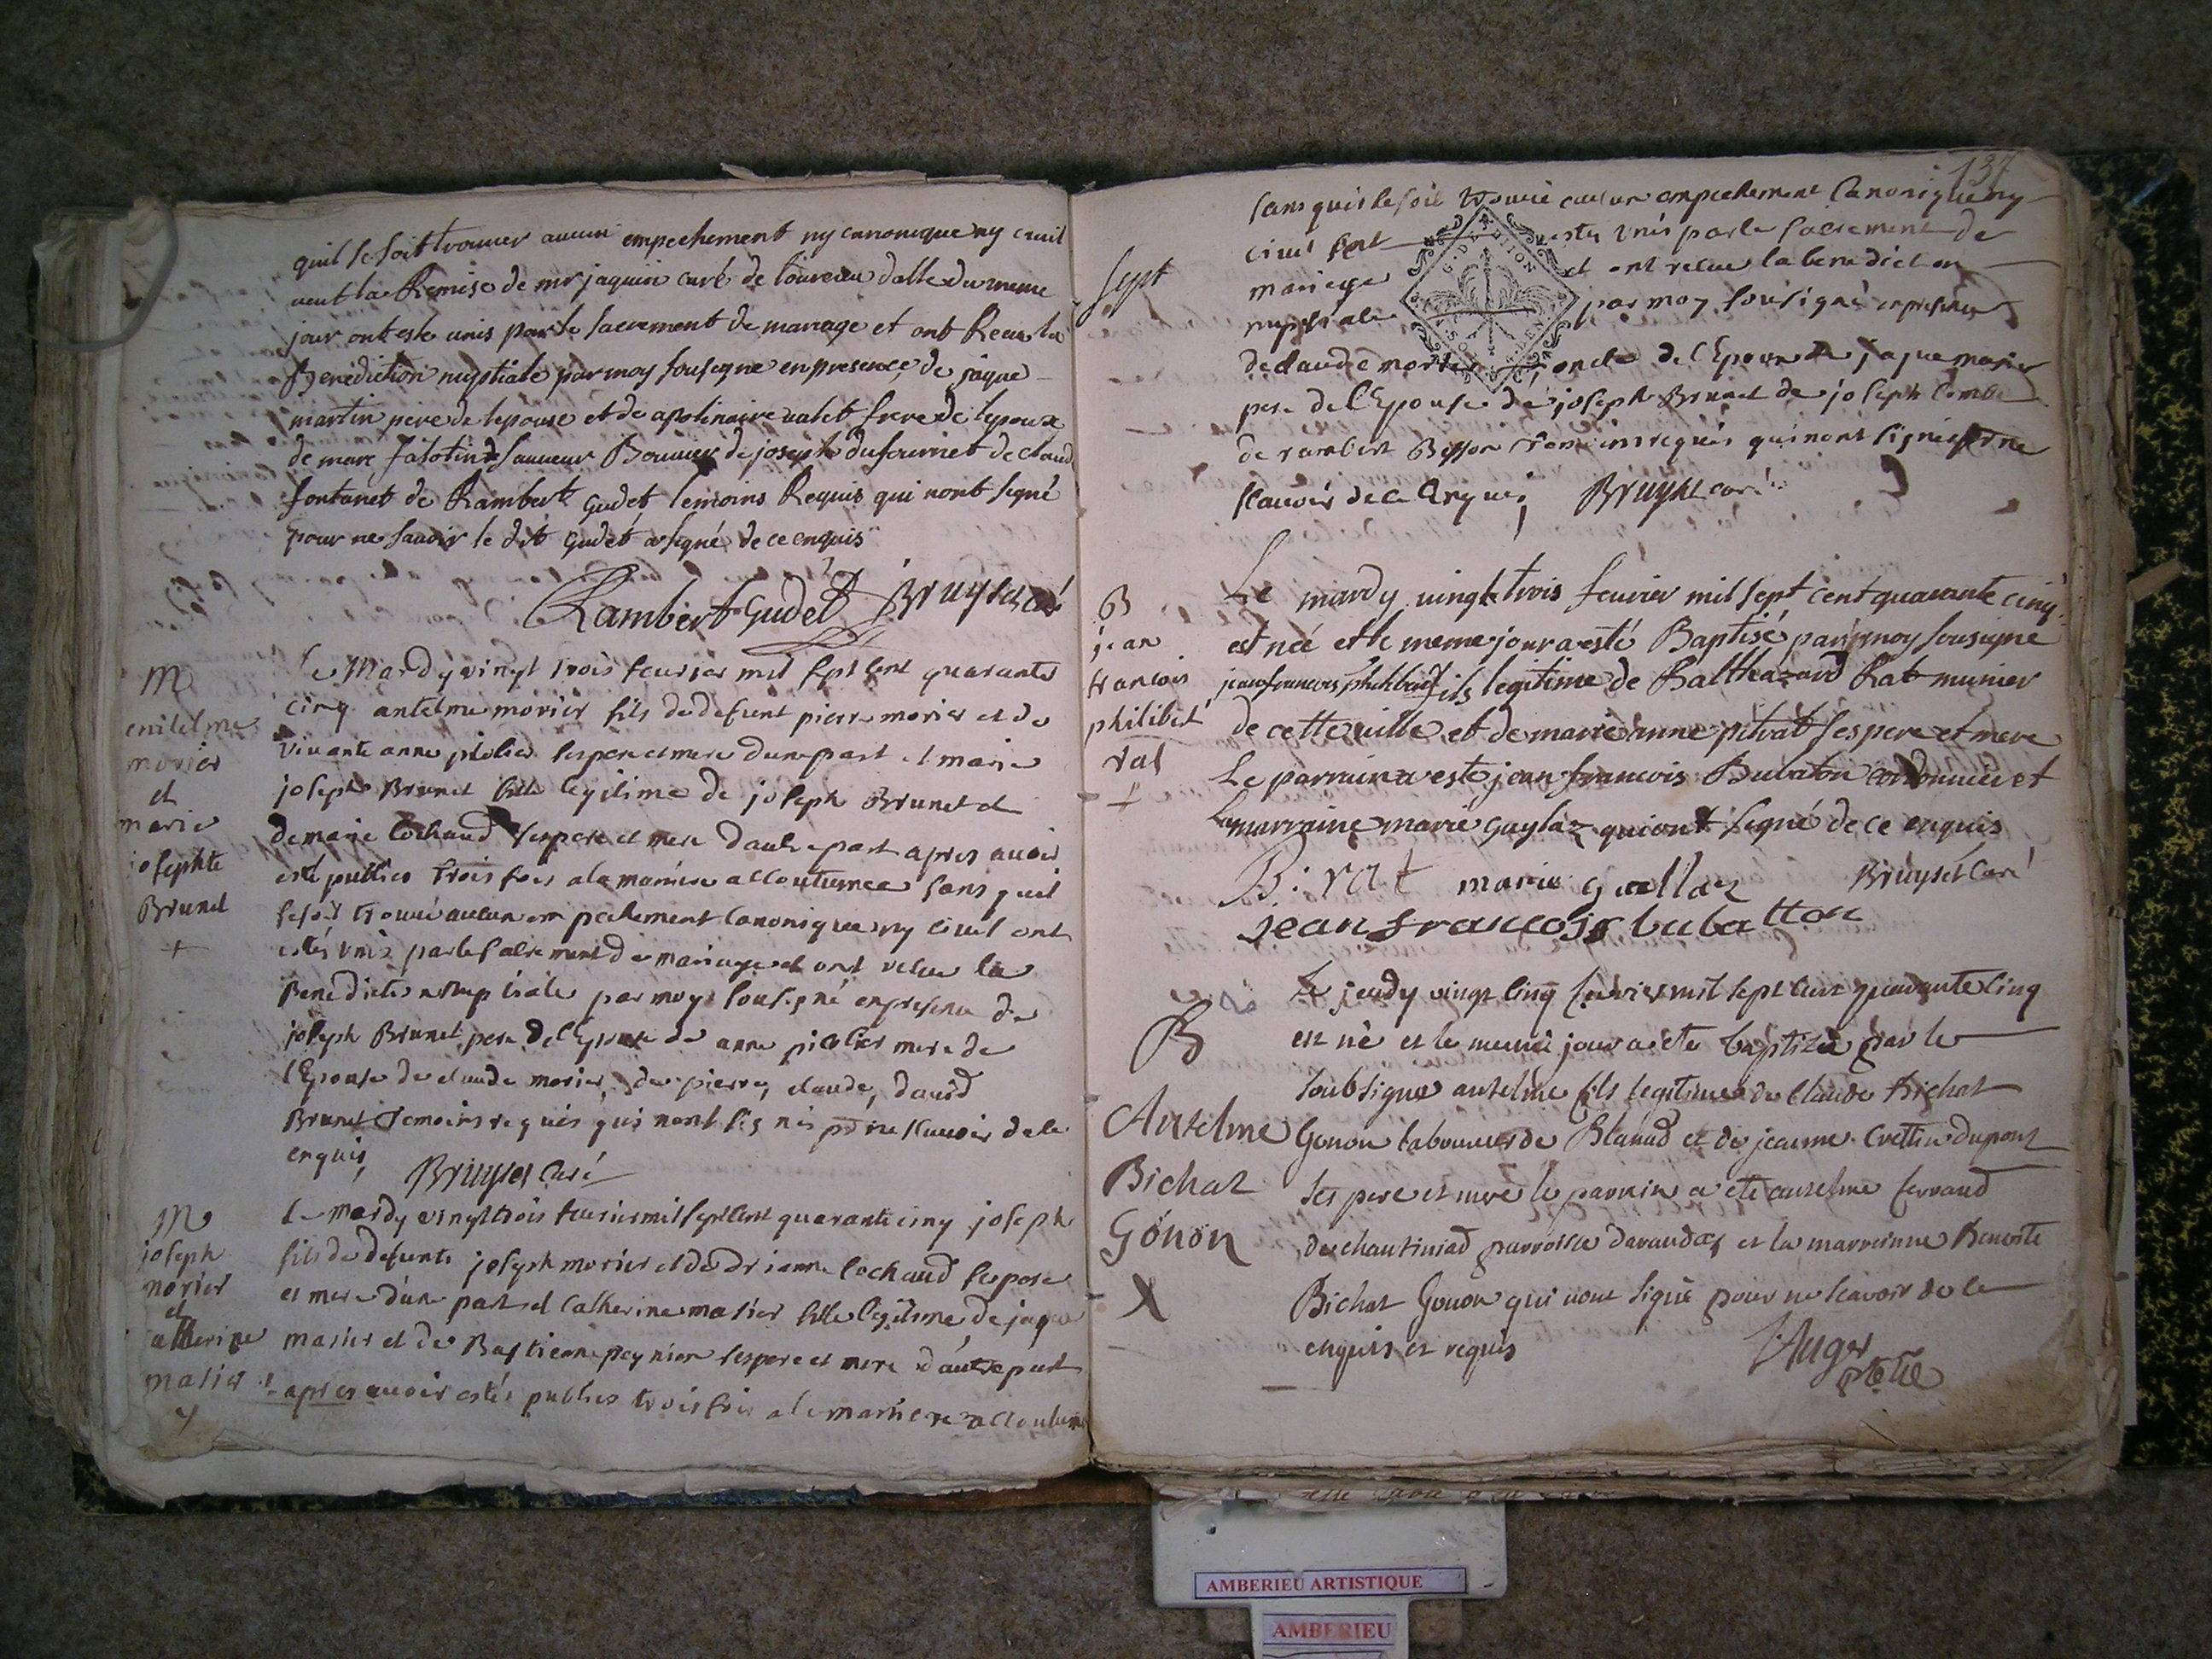 quil se soit trouver aucun empechement ny canonique ny civil
veut la Remise de mr jaquin curé de datte du meme
jour ont este unis par le sacrement de mariage et ont Receu la
Benediction nuptiale par moy sousigne en presence de jaque
martin pere de lepouse et de apolinaire valet frere de lepoux
de marc falotin de sauveur Bouvier de joseph dufourniet de claud
fontanet de Rambert gudet temoins Requis qui nont signé
pour ne savoir le dit gudet a signé de ce enquis
Rambert Gudet Bruyset curé
M
antelme
morier
et
marie
josephte
Brunet
+
Le Mardy vingt trois feurier mil sept cent quarante
cinq antelme morier fils de defunt pierre morier et de
vivante anne ses pere et mere dune part et marie
josephe Brunet fille legitime de joseph Brunet et
de marie cochaud ses pere et mere dautre part apres avoir
esté publies trois fois a la maniere accoutumee sans quil
se soit trouvé aucun empechement canonique ny civil ont
estés unis par le sacrement de mariage et ont receu la
Benediction Nuptiale par moy sousigné en presence de
joseph Brunet pere de l'Epouse de anne mere de
l'Epouse de claude morier, de pierre, claude, david
Brunet Temoins requis qui nont signés pr ne scavoir de ce
enquis
Bruyset Curé
M
joseph
morier
et
catherine
masier
Le mardy vingt trois feurier mil sept cent quarante cinq joseph
fils de defunts joseph morier et de drianne cochaud ses pere
et mere d'une part et Catherine masier fille legitime de jaque
masier et de Bastienne peynier ses pere et mere d'autre part
apres avoir estés publies trois fois a la maniere accoutume
137
sept
sans quil se soit trouvé aucun empechement Canonique ny
civil ont estes unis par le sacrement de
mariage et ont receu la benediction
nuptiale par moy sousigné en presence
de claude morier oncle de l'Epoux de jaque masier
pere de l'Epouse de joseph Brunet de joseph Combe
de rambert Besson temoins requis qui nont signés pr ne
scauoir de ce Enquis Bruyset curé
B
jean
francois
philibert
rat
+
Le mardy vingt trois feurier mil sept cent quarante cinq
est neé et le meme jour a esté Baptisé par moy sousigné
jean francois philibert fils legitime de Balthazard Rat munier
de cette ville et de marie anne pitrat ses pere et mere
Le parrain a este jean francois Bubaton cordonnier et
La marraine marie Guylaz qui ont signé de ce enquis
B: rat marie guellaz Bruyset Curé
jean francois bubatton
B
Antelme
Bichat
Gonon
X
Le jeudy vingt cinq fevrier mil sept cent quarante cinq
est né et le meme jour a ete baptizé par le
soubsigné antelme fils legitime de Claude Bichat
Gonon laboureur de Blanad et de jeanne Crettin dupont
ses pere et mere le parrain a ete antelme ferrand
de chantiniad parroisse darandas et la marrainne Benoite
Bichat Gonon qui nont signé pour ne scavoir de ce
enquis et requis
Auger
ptre
AMBERIEU ARTISTIQUE
AMBERIEU